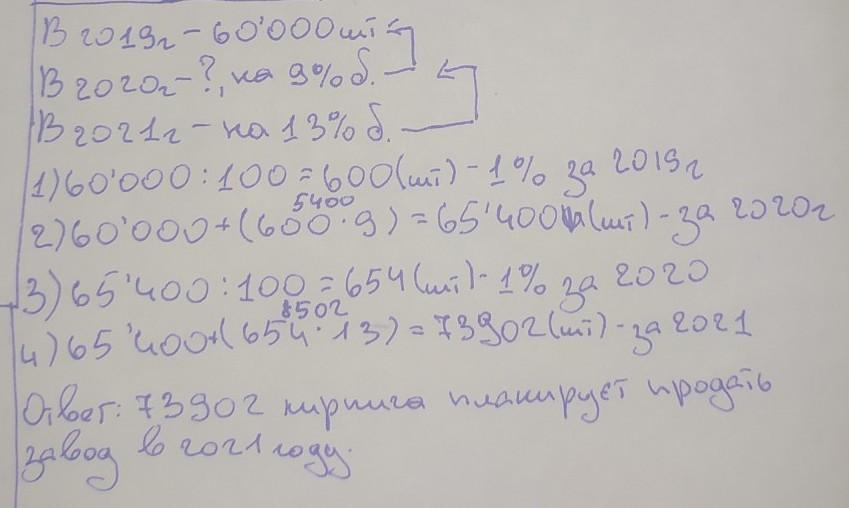 В 2019г - 60'000 шт
В 2020г - ?, на 9% б.
В 2021г - на 13% б.
1) 60'000 : 100 = 600 (шт) - 1% за 2019г
5400
2) 60'000 + (600 · 9) = 65'400 (шт) - за 2020г
3) 65'400 : 100 = 654 (шт) - 1% за 2020
8502
4) 65'400 + (654 · 13) = 73902 (шт) - за 2021
Ответ: 73902 кирпича планирует продать
завод в 2021 году.